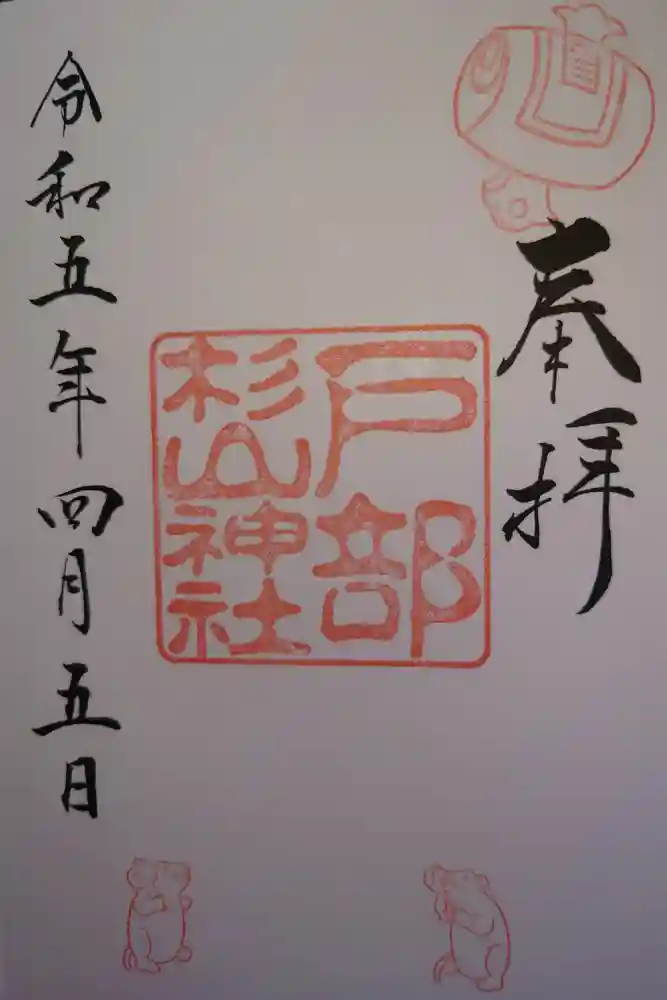 奉拝
戸部
杉山神社
令和五年四月五日